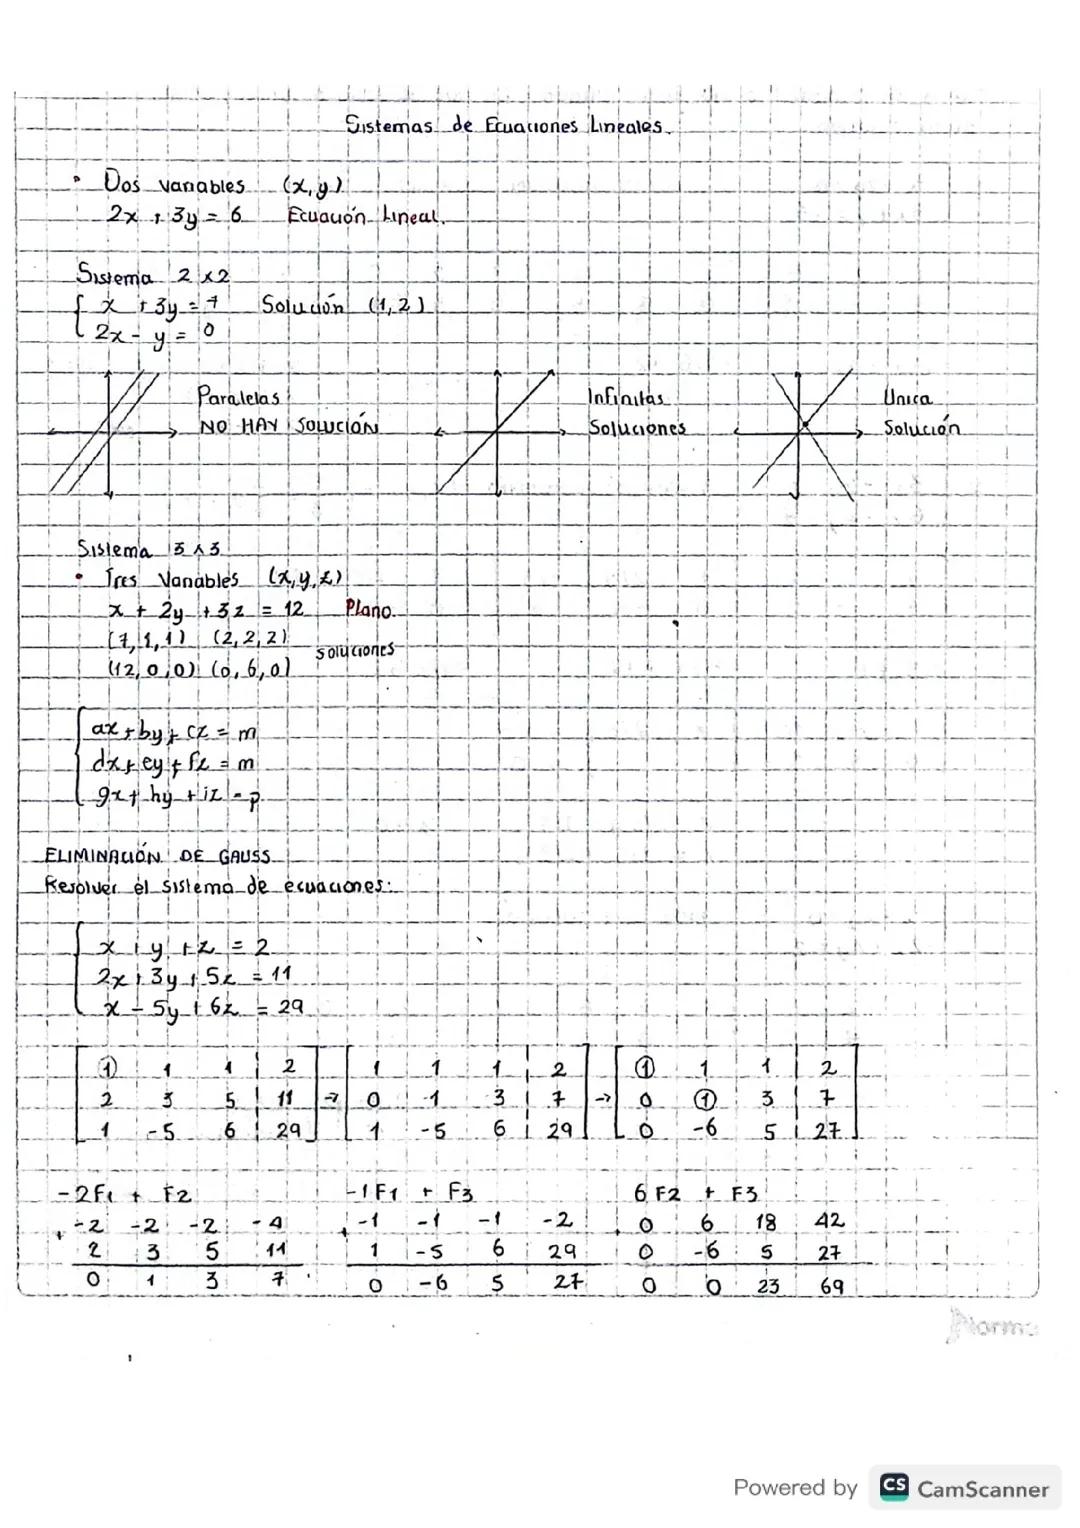 Sistemas de Ecuaciones Lineales.
• Dos variables (x, y)
2x + 3y = 6 Ecuación Lineal.
Sistema 2 x 2
x + 3y = 7 Solución (1, 2)
2x - y = 0
Paralelas
NO HAY SOLUCIÓN
Infinitas
Soluciones
Unica
Solución
Sistema 3 x 3
• Tres Variables (x, y, z)
x + 2y + 3z = 12 Plano.
(7, 1, 1) (2, 2, 2)
(12, 0, 0) (0, 6, 0)
soluciones
ax + by + cz = m
dx + ey + fz = m
gx + hy + iz = p
ELIMINACIÓN DE GAUSS
Resolver el sistema de ecuaciones:
x + y + z = 2
2x + 3y + 5z = 11
x - 5y + 6z = 29
1 1 1 | 2 → 1 1 1 | 2 → 1 1 1 | 2
2 3 5 | 11 0 1 3 | 7 0 1 3 | 7
1 -5 6 | 29 1 -5 6 | 29 0 -6 5 | 27
-2F1 + F2 -1F1 + F3 6F2 + F3
+ -2 -2 -2 -4 + -1 -1 -1 -2 + 0 6 18 42
2 3 5 11 1 -5 6 29 0 -6 5 27
0 1 3 7 0 -6 5 27 0 0 23 69
Norma
Powered by CS CamScanner